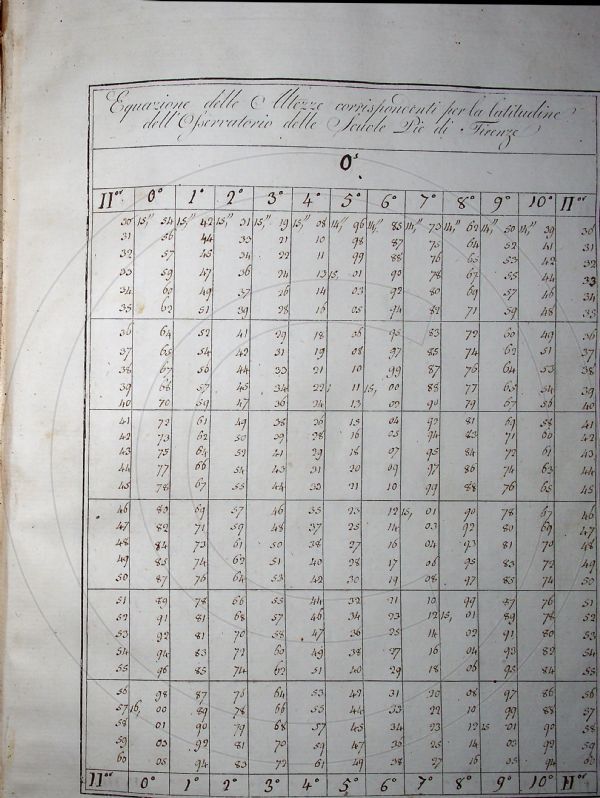 Equazione delle Altezze corrispondenti per la latitudine
dell'Osservatorio delle Scuole Pie di Firenze
0ˢ
II°ʳ 0° 1° 2° 3° 4° 5° 6° 7° 8° 9° 10° II°ʳ
30 15," 54 15," 42 15," 31 15," 19 15," 08 14," 96 14," 85 14," 73 14," 62 14," 50 14," 39 30
31 56 44 33 21 10 98 87 75 64 52 41 31
32 57 45 34 22 11 99 88 76 65 53 42 32
33 59 47 36 24 13 15, 01 90 78 67 55 44 33
34 60 49 37 26 14 03 92 80 69 57 46 34
35 62 51 39 28 16 05 94 82 71 59 48 35
36 64 52 41 29 18 06 95 83 72 60 49 36
37 65 54 42 31 19 08 97 85 74 62 51 37
38 67 56 44 33 21 10 99 87 76 64 53 38
39 68 57 45 34 22 11 15, 00 88 77 65 54 39
40 70 59 47 36 24 13 02 90 79 67 56 40
41 72 61 49 38 26 15 04 92 81 69 58 41
42 73 62 50 39 28 16 05 94 83 71 60 42
43 75 64 52 41 29 18 07 95 84 72 61 43
44 77 66 54 43 31 20 09 97 86 74 63 44
45 78 67 55 44 33 21 10 99 88 76 65 45
46 80 69 57 46 35 23 12 15, 01 90 78 67 46
47 82 71 59 48 37 25 14 03 92 80 69 47
48 84 73 61 50 38 27 16 04 93 81 70 48
49 85 74 62 51 40 28 17 06 95 83 72 49
50 87 76 64 53 42 30 19 08 97 85 74 50
51 89 78 66 55 44 32 21 10 99 87 76 51
52 91 81 68 57 46 34 23 12 15, 01 89 78 52
53 92 81 70 58 47 36 25 14 02 91 80 53
54 94 83 72 60 49 38 27 16 04 93 82 54
55 96 85 74 62 51 40 29 18 06 95 84 55
56 98 87 76 64 53 42 31 20 08 97 86 56
57 16, 00 89 78 66 55 44 33 22 10 99 88 57
58 01 90 79 68 57 45 34 23 12 15 01 90 58
59 03 92 81 70 59 47 36 25 14 03 92 59
60 05 94 83 72 61 49 38 27 16 05 94 60
II°ʳ 0° 1° 2° 3° 4° 5° 6° 7° 8° 9° 10° II°ʳ